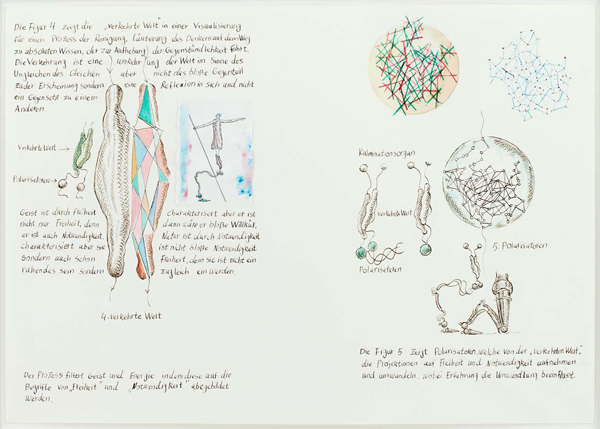 Die Figur 4 zeigt die „verkehrte Welt" in einer Visualisierung
für einen Prozess der Reinigung, Läuterung des Denkens auf dem Weg
zu absoluten Wissen, der zur Aufhebung der Gegenständlichkeit führt.
Die Verkehrung ist eine umkehrung der Welt im Sinne des
Ungleichen des Gleichen aber nicht des bloße Gegenteil
zu der Erscheinung sondern eine Reflexion in Sich und nicht
ein Gegensatz zu einem
Anderen.
Verkehrte Welt
Polarisatoren
Geist ist durch Freiheit
nicht nur Freiheit, denn
er ist auch Notwendigkeit.
Charakterisiert aber sie
sondern auch schon
ruhendes sein sondern
charakterisiert aber er ist
dann wäre er bloße Willkür,
Natur ist durch Notwendigkeit
ist nicht bloße Notwendigkeit
Freiheit, denn sie ist nicht ein
zugleich ein werden.
4. verkehrte Welt
Der Prozess filtert Geist und Energie indem diese auf die
Begriffe von „Freiheit" und „Notwendigkeit" abgebildet
werden.
Kulminationsorgan
verkehrte Welt
Polarisatoren
5. Polarisatoren
Die Figur 5 zeigt Polarisatoren, welche von der „verkehrten Welt"
die Projektionen auf Freiheit und Notwendigkeit aufnehmen
und umwandeln, wobei Erfahrung die Umwandlung beeinflusst.